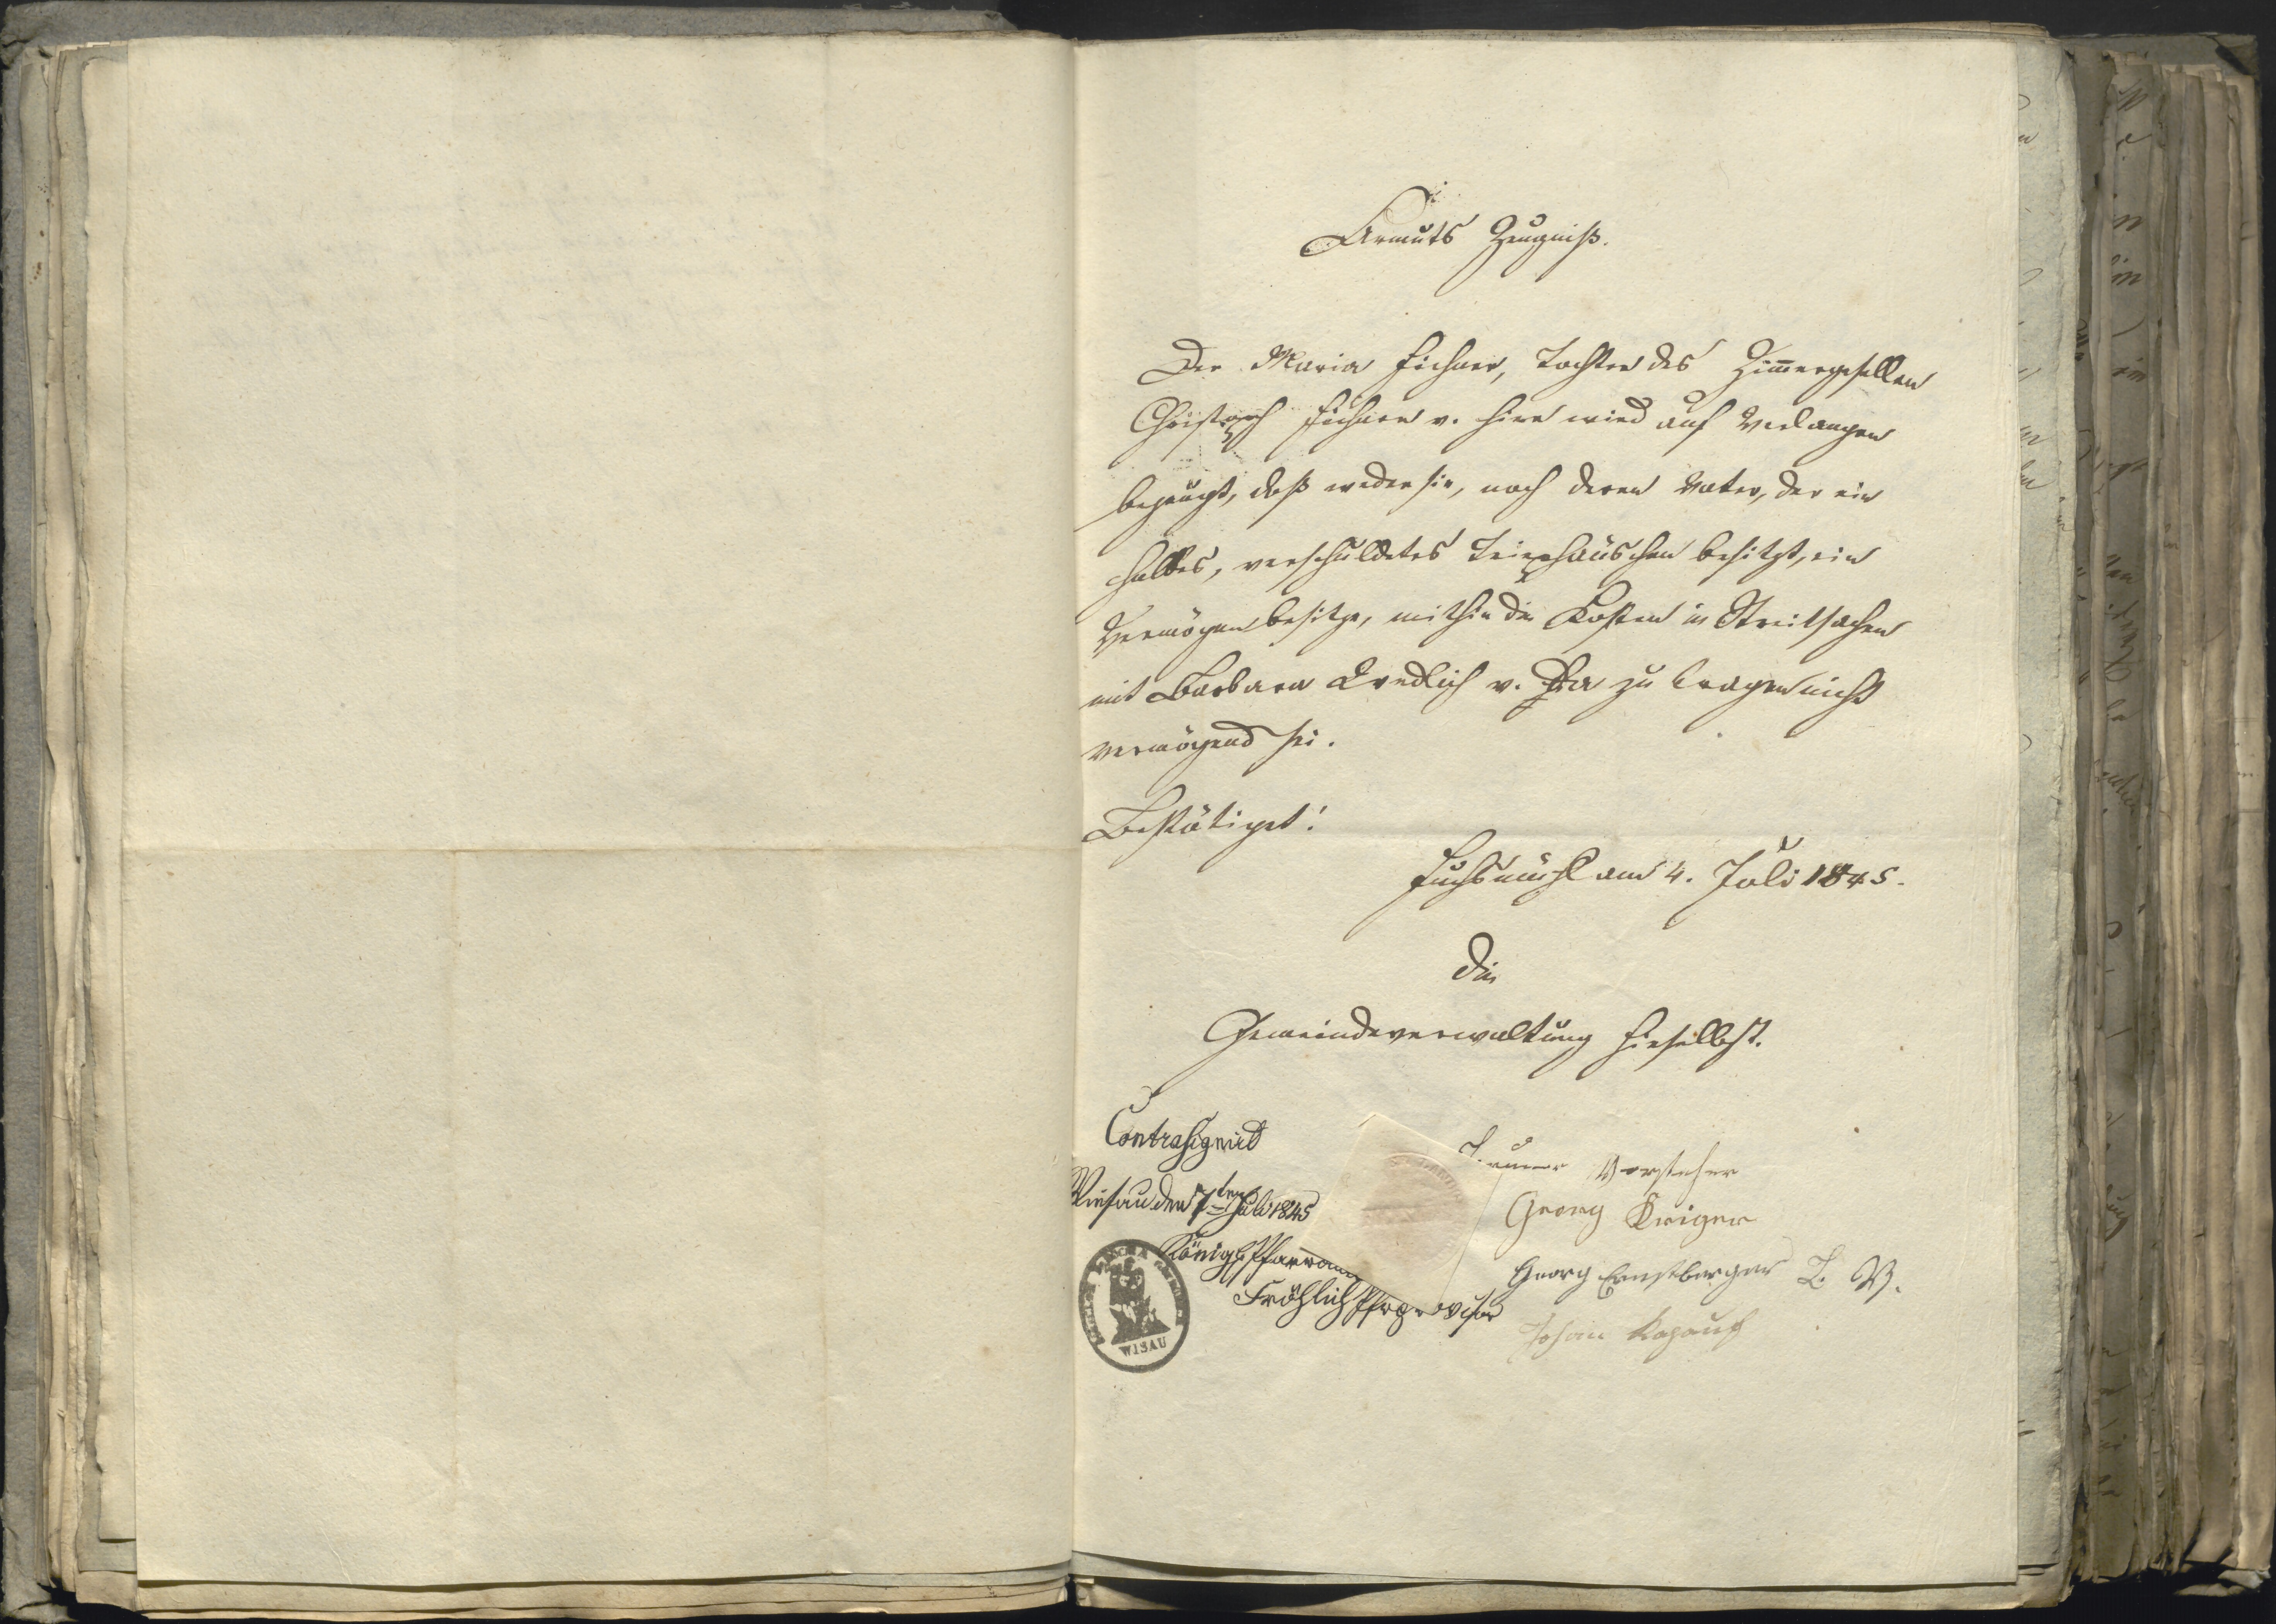 Armuts Zeugniß.
Der Maria Fichner, Tochter des Zim̄ergesellen
Christoph Fichner v. hier wird auf Verlangen
bezeugt, daß weder sie, noch deren Vater, der ein
halbes, verschuldetes Tripfhäuschen besitzt, ein
Vermögen besitze, mithin die Kosten in Streitsachen
mit Barbara v. zu tragen nicht
vermögend sei.
Bestätiget!
Fuchsmühl am 4. Juli 1845.
Die
Gemeindeverwaltung hieselbst.
Contrasignirt
Wiesau den 7ten Juli 1845
Königl. Pfarramt
Fröhlich Pfrprovisor
WISAU
Vorsteher
Georg Krigner
Georg Ernstberger
Johan